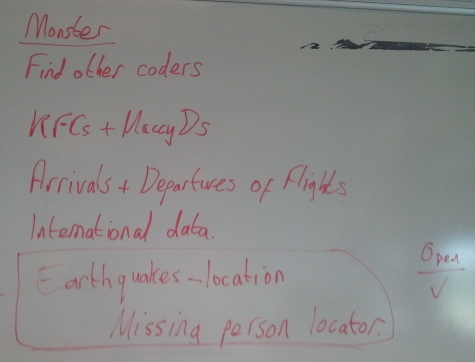 Monster
Find other coders
KFCs + MaccyDs
Arrivals + Departures of Flights
International data.
Earthquakes - location
Missing person locator.
Open